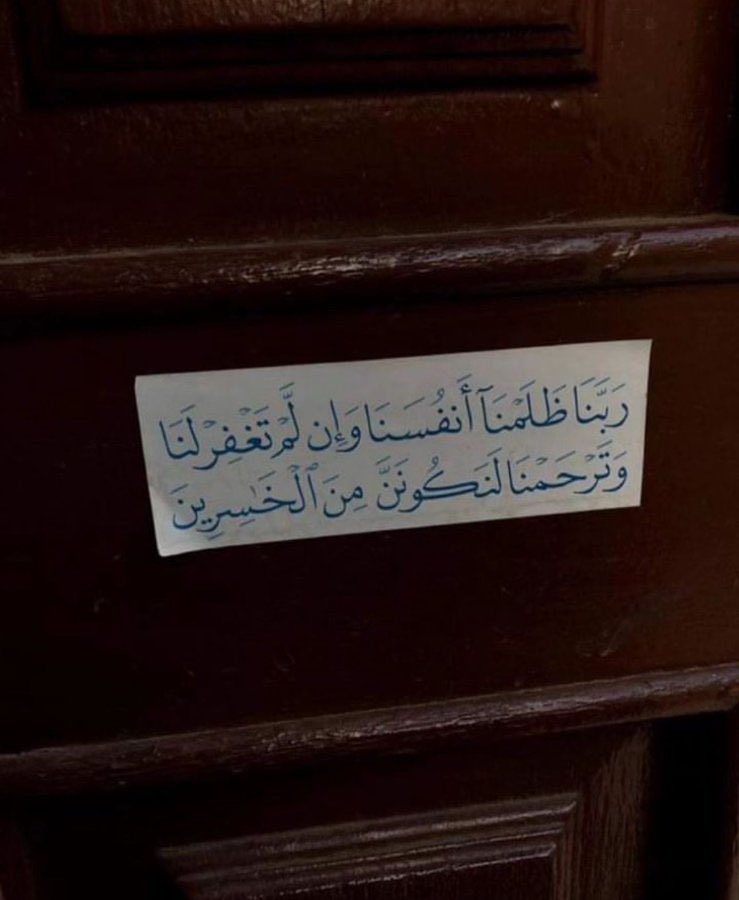 رَبَّنَا ظَلَمْنَآ أَنفُسَنَا وَإِن لَّمْ تَغْفِرْ لَنَا
وَتَرْحَمْنَا لَنَكُونَنَّ مِنَ ٱلْخَٰسِرِينَ